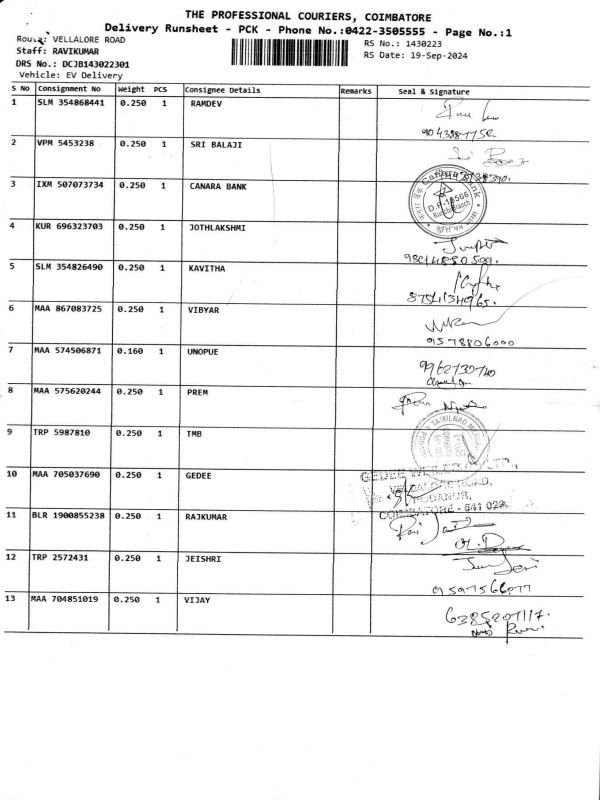 THE PROFESSIONAL COURIERS, COIMBATORE
Delivery Runsheet - PCK - Phone No.:0422-3505555 - Page No.:1
Route: VELLALORE ROAD
RS No.: 1430223
Staff: RAVIKUMAR
RS Date: 19-Sep-2024
DRS No.: DCJB143022301
Vehicle: EV Delivery
S No Consignment No Weight PCS Consignee Details Remarks Seal & Signature
1 SLM 354868441 0.250 1 RAMDEV
2 VPM 5453238 0.250 1 SRI BALAJI
3 IXM 507073734 0.250 1 CANARA BANK
Canara Bank
4 KUR 696323703 0.250 1 JOTHLAKSHMI
5 SLM 354826490 0.250 1 KAVITHA
6 MAA 867083725 0.250 1 VIBYAR
9578806000
7 MAA 574506871 0.160 1 UNOPUE
9962730740
8 MAA 575620244 0.250 1 PREM
9 TRP 5987810 0.250 1 TMB
TAMILNAD
10 MAA 705037690 0.250 1 GEDEE
GEDEE
ROAD,
COIMBATORE - 641 022
11 BLR 1900855238 0.250 1 RAJKUMAR
12 TRP 2572431 0.250 1 JEISHRI
9597566077
13 MAA 704851019 0.250 1 VIJAY
6385207117.